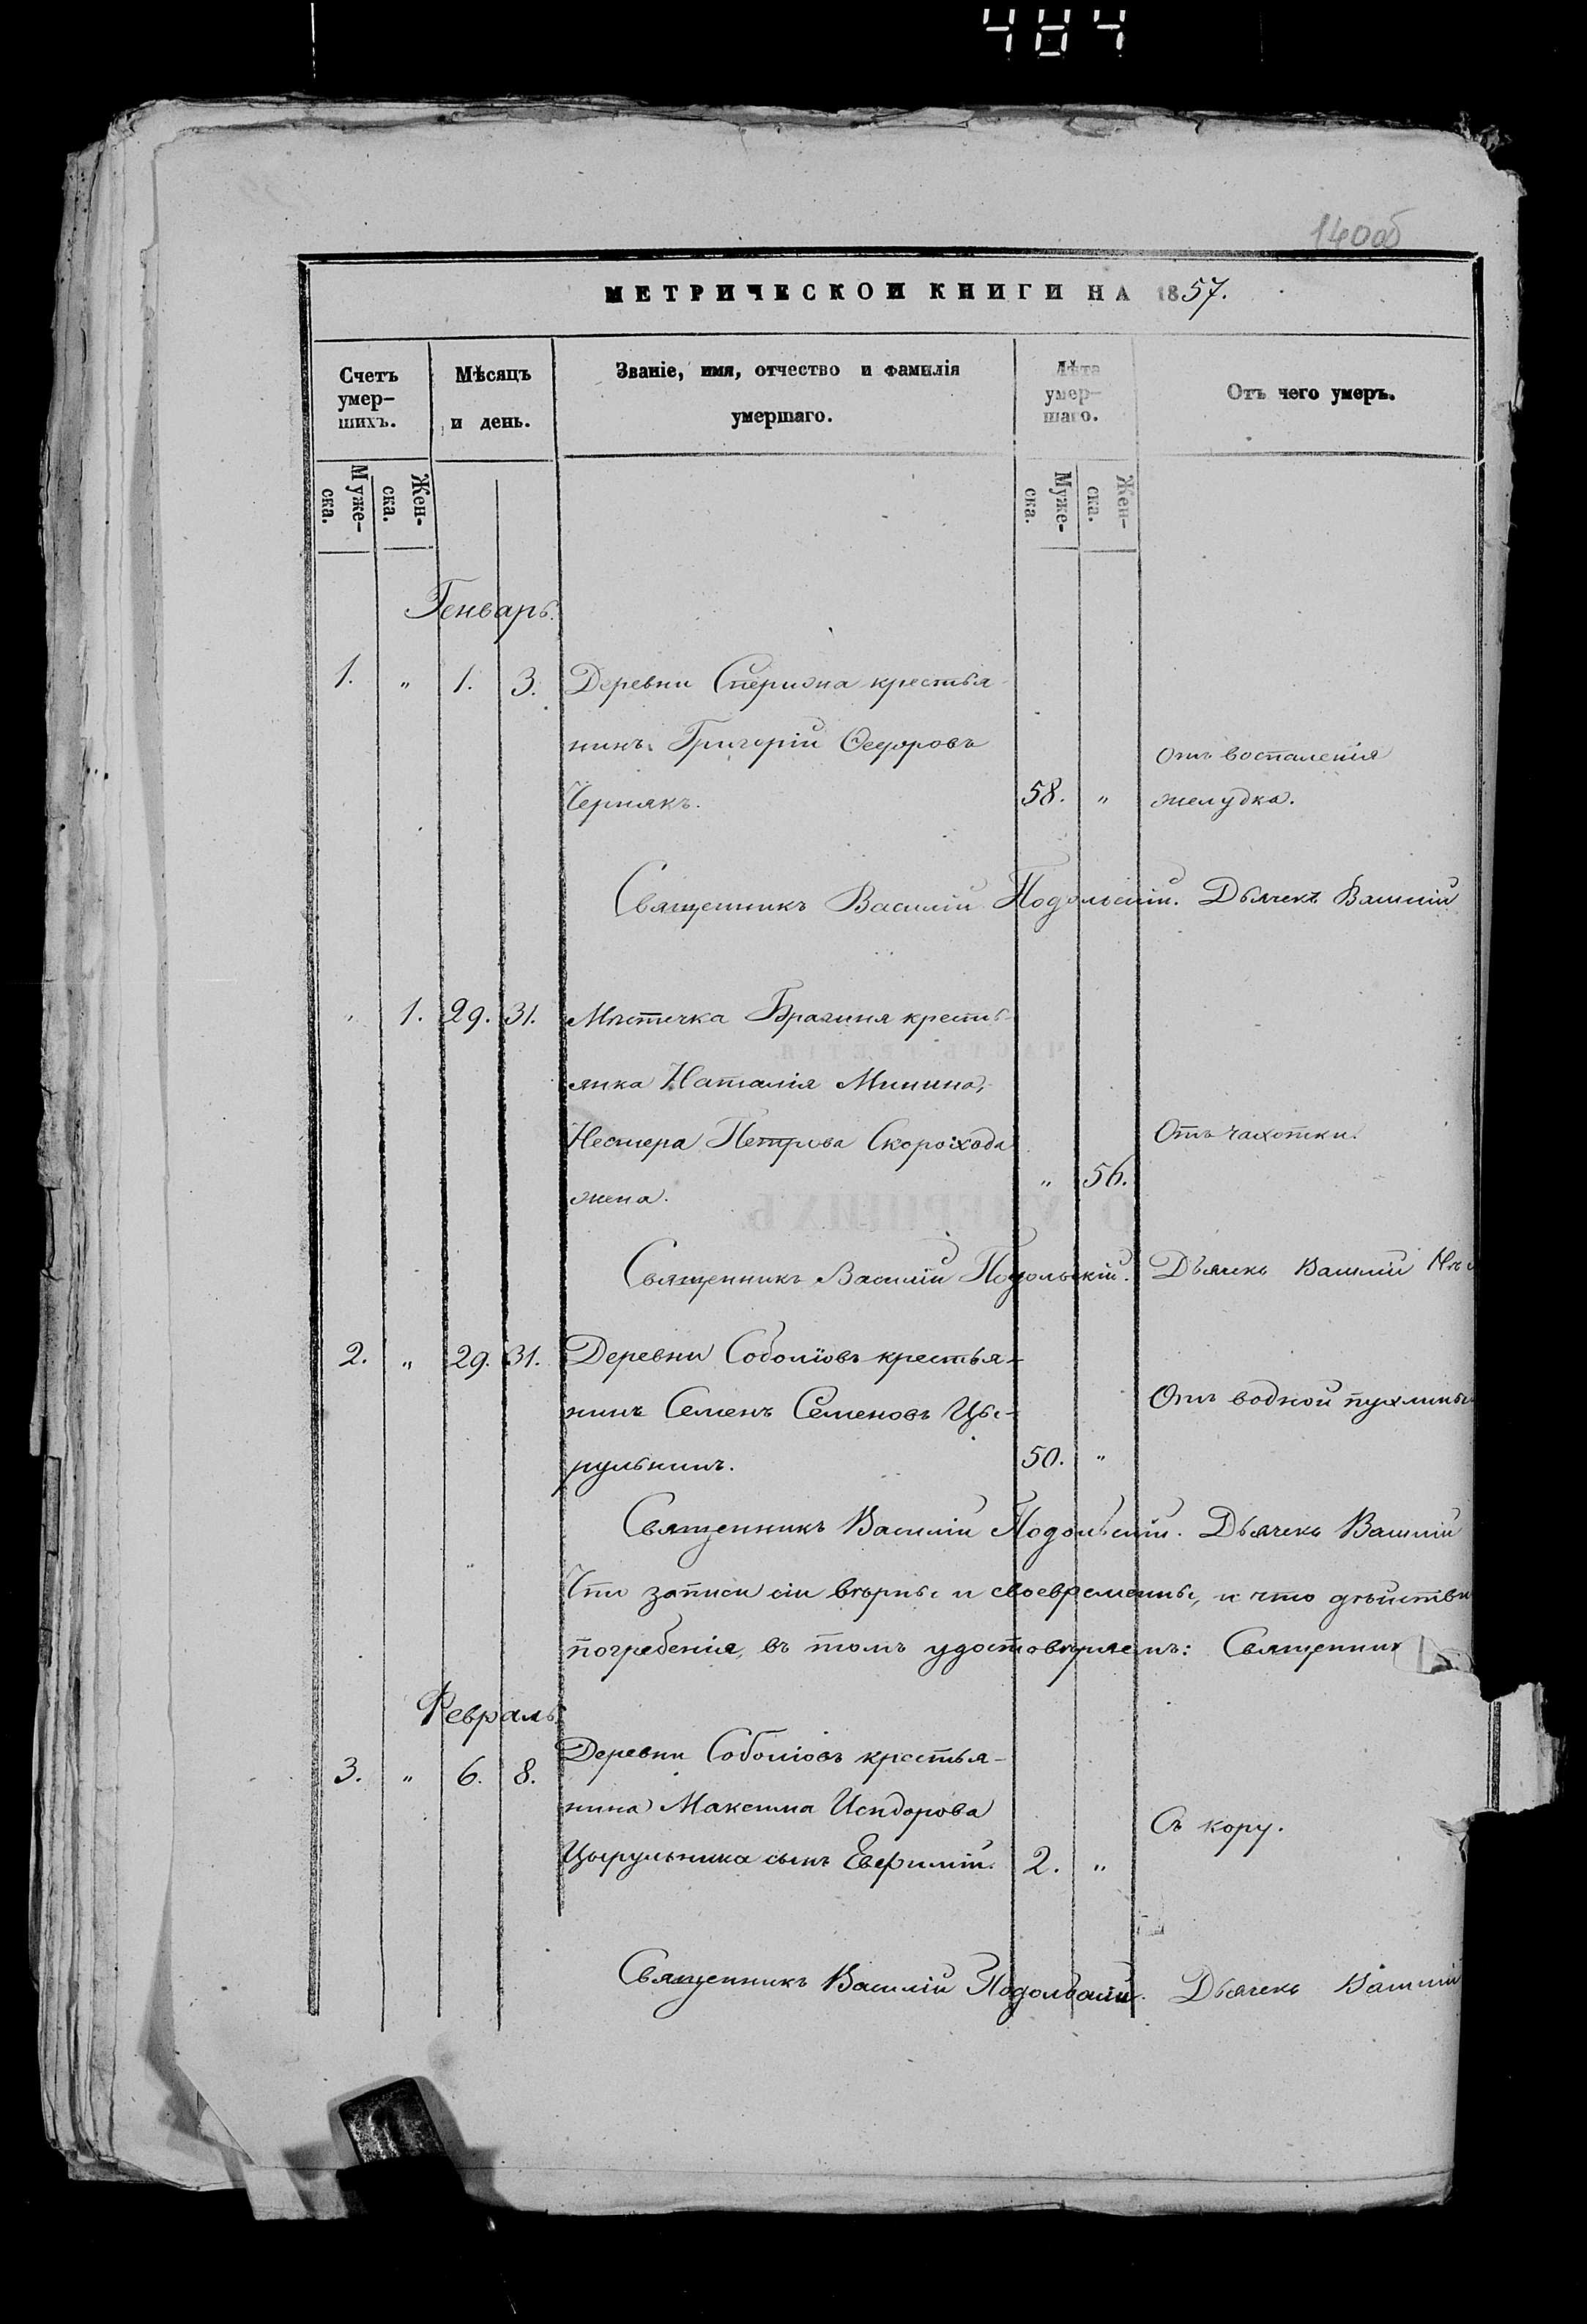 484
140об
МЕТРИЧЕСКОЙ КНИГИ НА 1857.
Счетъ умер-шихъ.
Мѣсяцъ и день.
Званіе, имя, отчество и фамилія умершаго.
Лѣта умер-шаго.
Отъ чего умеръ.
Муже-ска.
Жен-ска.
Муже-ска.
Жен-ска.
Генварь.
1. " 1. 3. Деревни крестья-
нинъ Григорій Ѳедоровъ
Отъ воспаленія
Чернякъ. 58. " желудка.
Священникъ Василій Подольскій. Дьячекъ Василій
" 1. 29. 31. Мѣстечка Брагиня кресть-
янка Наталія Минина,
Нестера Петрова Скорохода
Отъ чахотки.
жена. " 56.
Священникъ Василій Подольскій. Дьячекъ Василій
2. " 29. 31. Деревни Соболіовъ крестья-
нинъ Семенъ Семеновъ Цы-
Отъ водной пухлины
рульникъ. 50. "
Священникъ Василій Подольскій. Дьячекъ Василій
Что записи сіи вѣрны и своевременны, и что дѣйстви
погребенія, въ томъ удостовѣряемъ: Священник
Февраль.
3. " 6. 8. Деревни Соболіовъ крестья-
нина Максима Исидорова
Съ кору.
Цырульника сынъ Евфимій. 2. "
Священникъ Василій Подольскій. Дьячекъ Василій